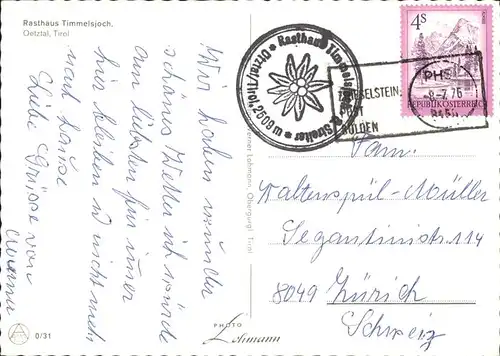 Rasthaus Timmelsjoch.
Oetztal, Tirol
Wir haben wunder
schönes Wetter ich würde
am liebsten für imer
hier bleiben u nicht mehr
nach Hause
Liebe Grüsse von
0/31
PHOTO
Lohmann
Werner Lohmann, Obergurgl Tirol
★ Rasthaus Timmelsjoch
Streiter ★ Ötztal/Tirol, 2509 m
4S
REPUBLIK ÖSTERREICH
-8-7.76
SÖLDEN
Fam.
Waltenspül-Müller
Segantinistr. 114
8049 Zürich
Schweiz